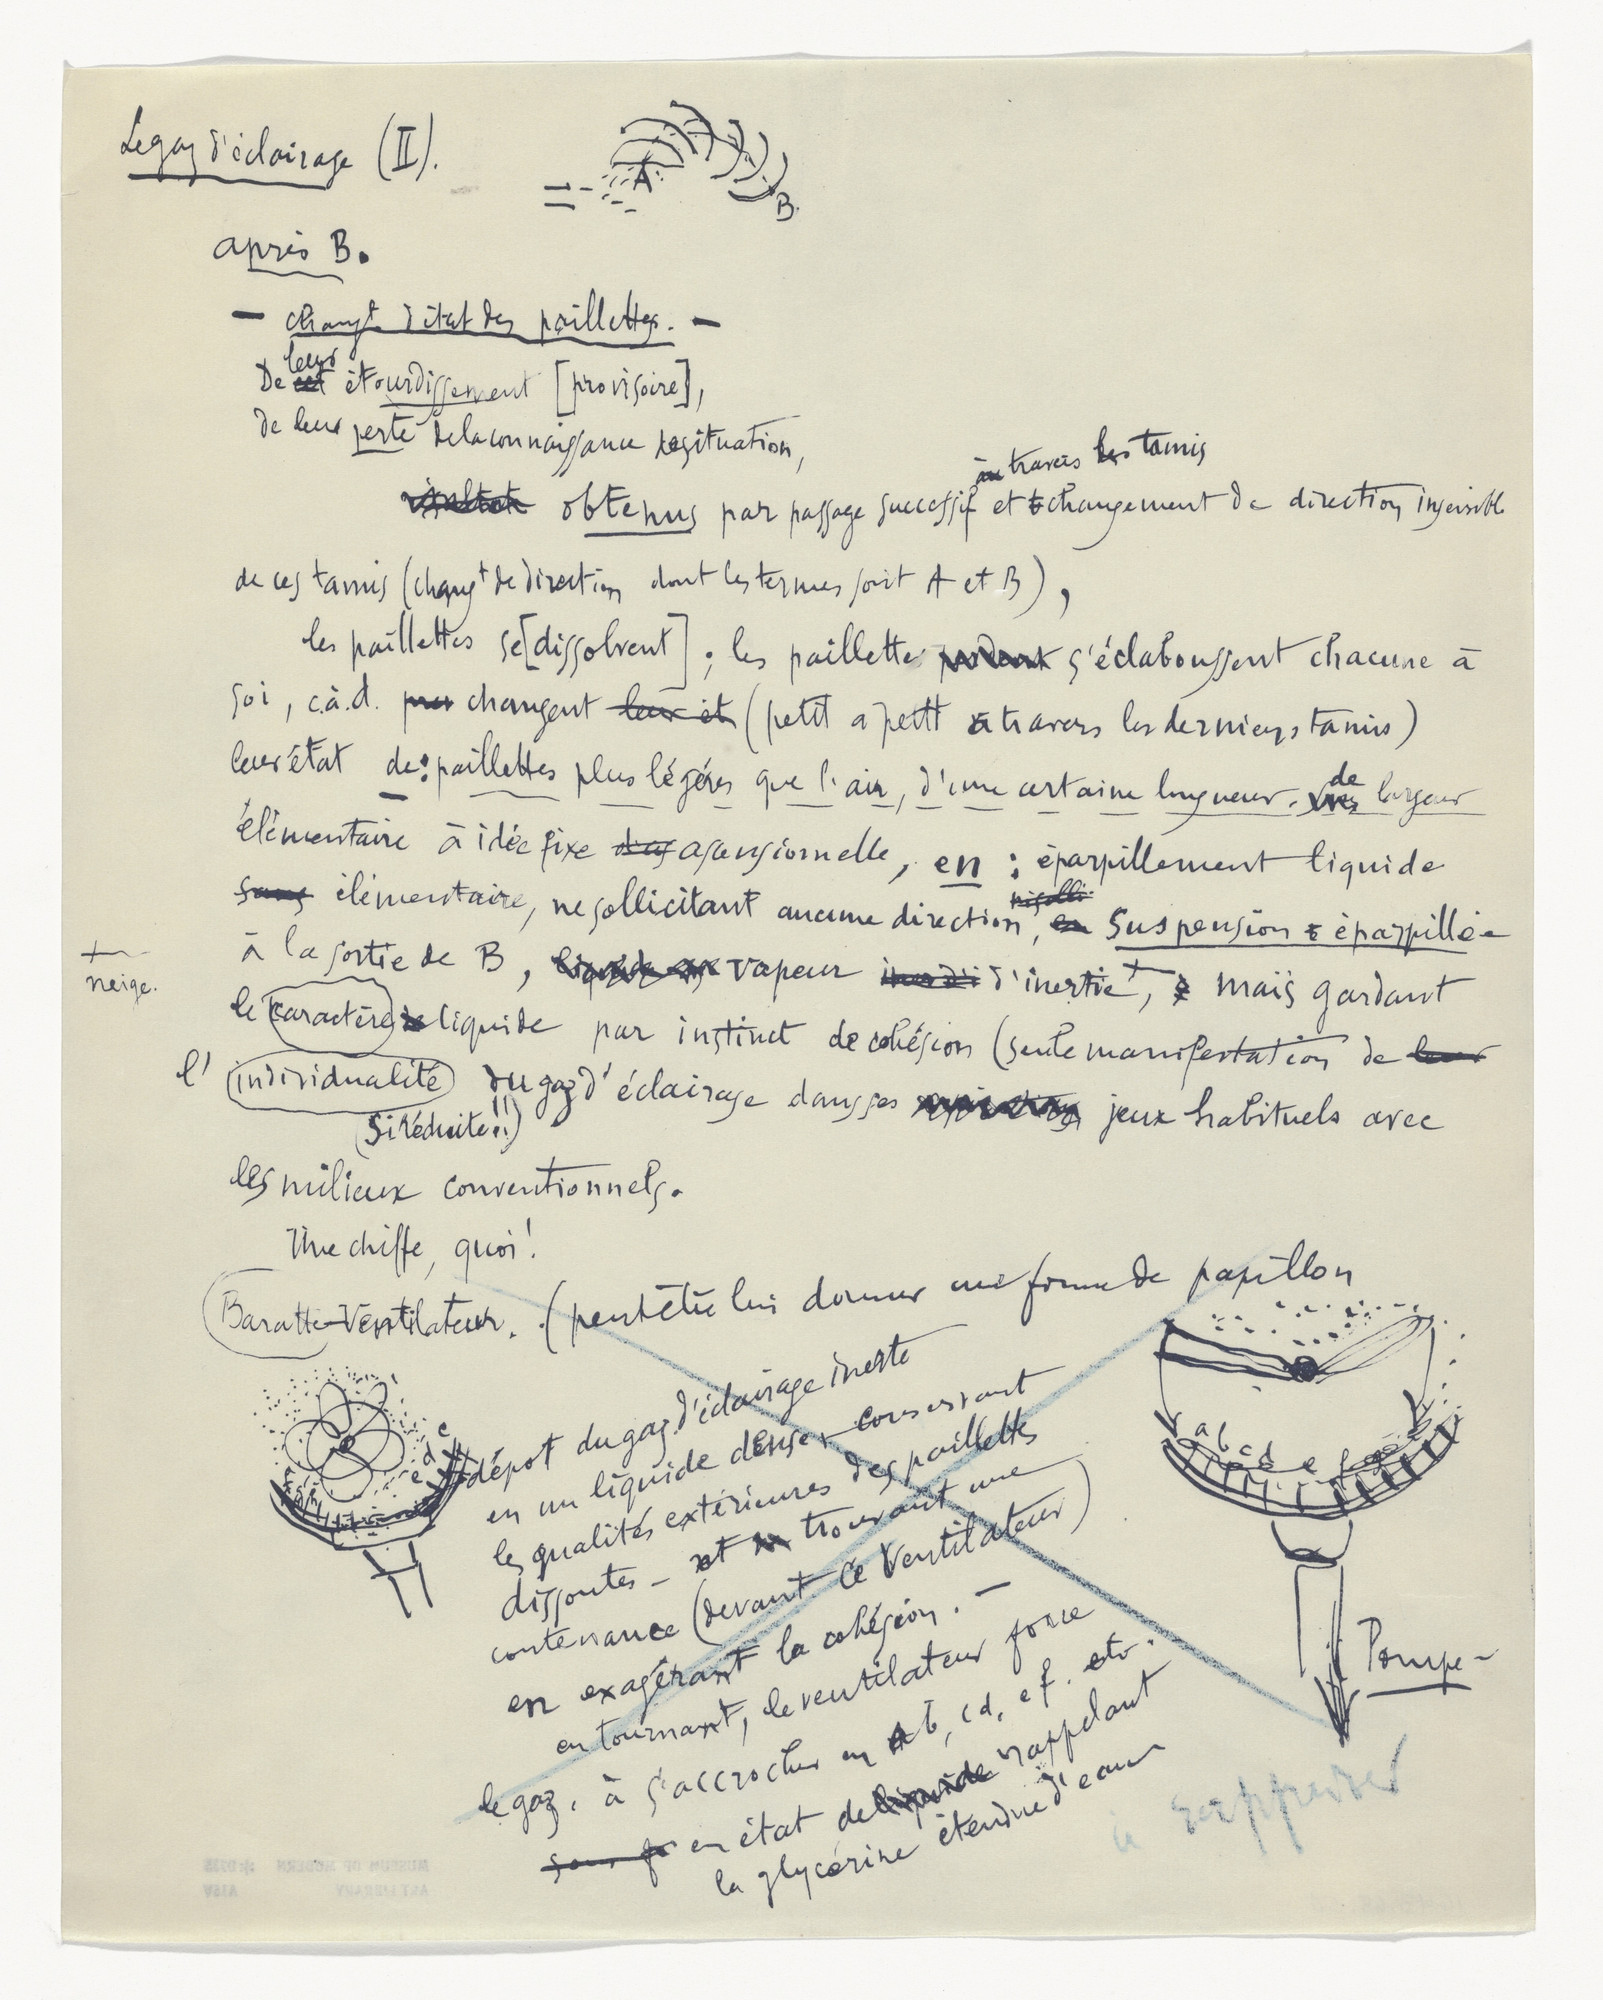 Le gaz d'éclairage (II).
A
B.
après B.
— changt d'état des paillettes. —
leur
De cet étourdissement [provisoire],
de leur perte de la connaissance de situation,
à travers les tamis
obtenus par passage successif et changement de direction insensible
de ces tamis (changt de direction dont les termes sont A et B),
les paillettes se [dissolvent] ; les paillettes s'éclaboussent chacune à
soi, c.à.d. changent leur ét (petit a petit à travers les derniers tamis)
leur état de : paillettes plus légères que l'air, d'une certaine longueur, de largeur
élémentaire à idée fixe ascensionnelle, en : éparpillement liquide
sans élémentaire, ne sollicitant aucune direction, en Suspension éparpillée
à la sortie de B, vapeur d'inertie +, mais gardant
+
neige.
le caractère liquide par instinct de cohésion (seule manifestation de leur
l' individualité du gaz d'éclairage dans ses jeux habituels avec
(si réduite !!)
les milieux conventionnels.
Une chiffe, quoi !
Baratte-Ventilateur. (peut être lui donner une forme de papillon
dépot du gaz d'éclairage inerte
en un liquide dense conservant
les qualités extérieures des paillettes
dissoutes — et trouvant une
contenance (devant ce Ventilateur)
en exagérant la cohésion. —
en tournant, le ventilateur force
le gaz, à s'accrocher en ab, cd, ef. etc.
en état de liquide rappelant
la glycérine étendue d'eau
e d c
a b c d e f
Pompe —
MUSEUM OF MODERN
ART LIBRARY